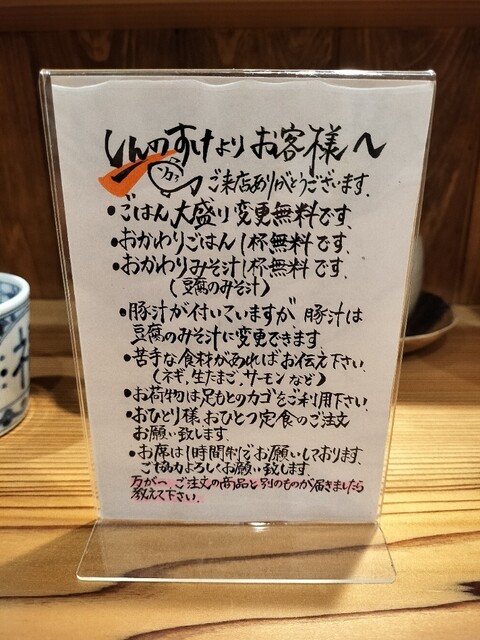 しんのすけより お客様へ
ご来店ありがとうございます。
・ごはん大盛り変更無料です。
・おかわりごはん1杯無料です。
・おかわりみそ汁1杯無料です。
(豆腐のみそ汁)
・豚汁が付いていますが、豚汁は
豆腐のみそ汁に変更できます。
・苦手な食材があればお伝え下さい。
(ネギ,生たまご,サーモンなど)
・お荷物は足もとのカゴをご利用下さい。
・おひとり様、おひとつ定食のご注文
お願い致します。
・お席は1時間制でお願いしております。
ご協力よろしくお願い致します。
万が一、ご注文の商品と別のものが届きましたら
教えて下さい。